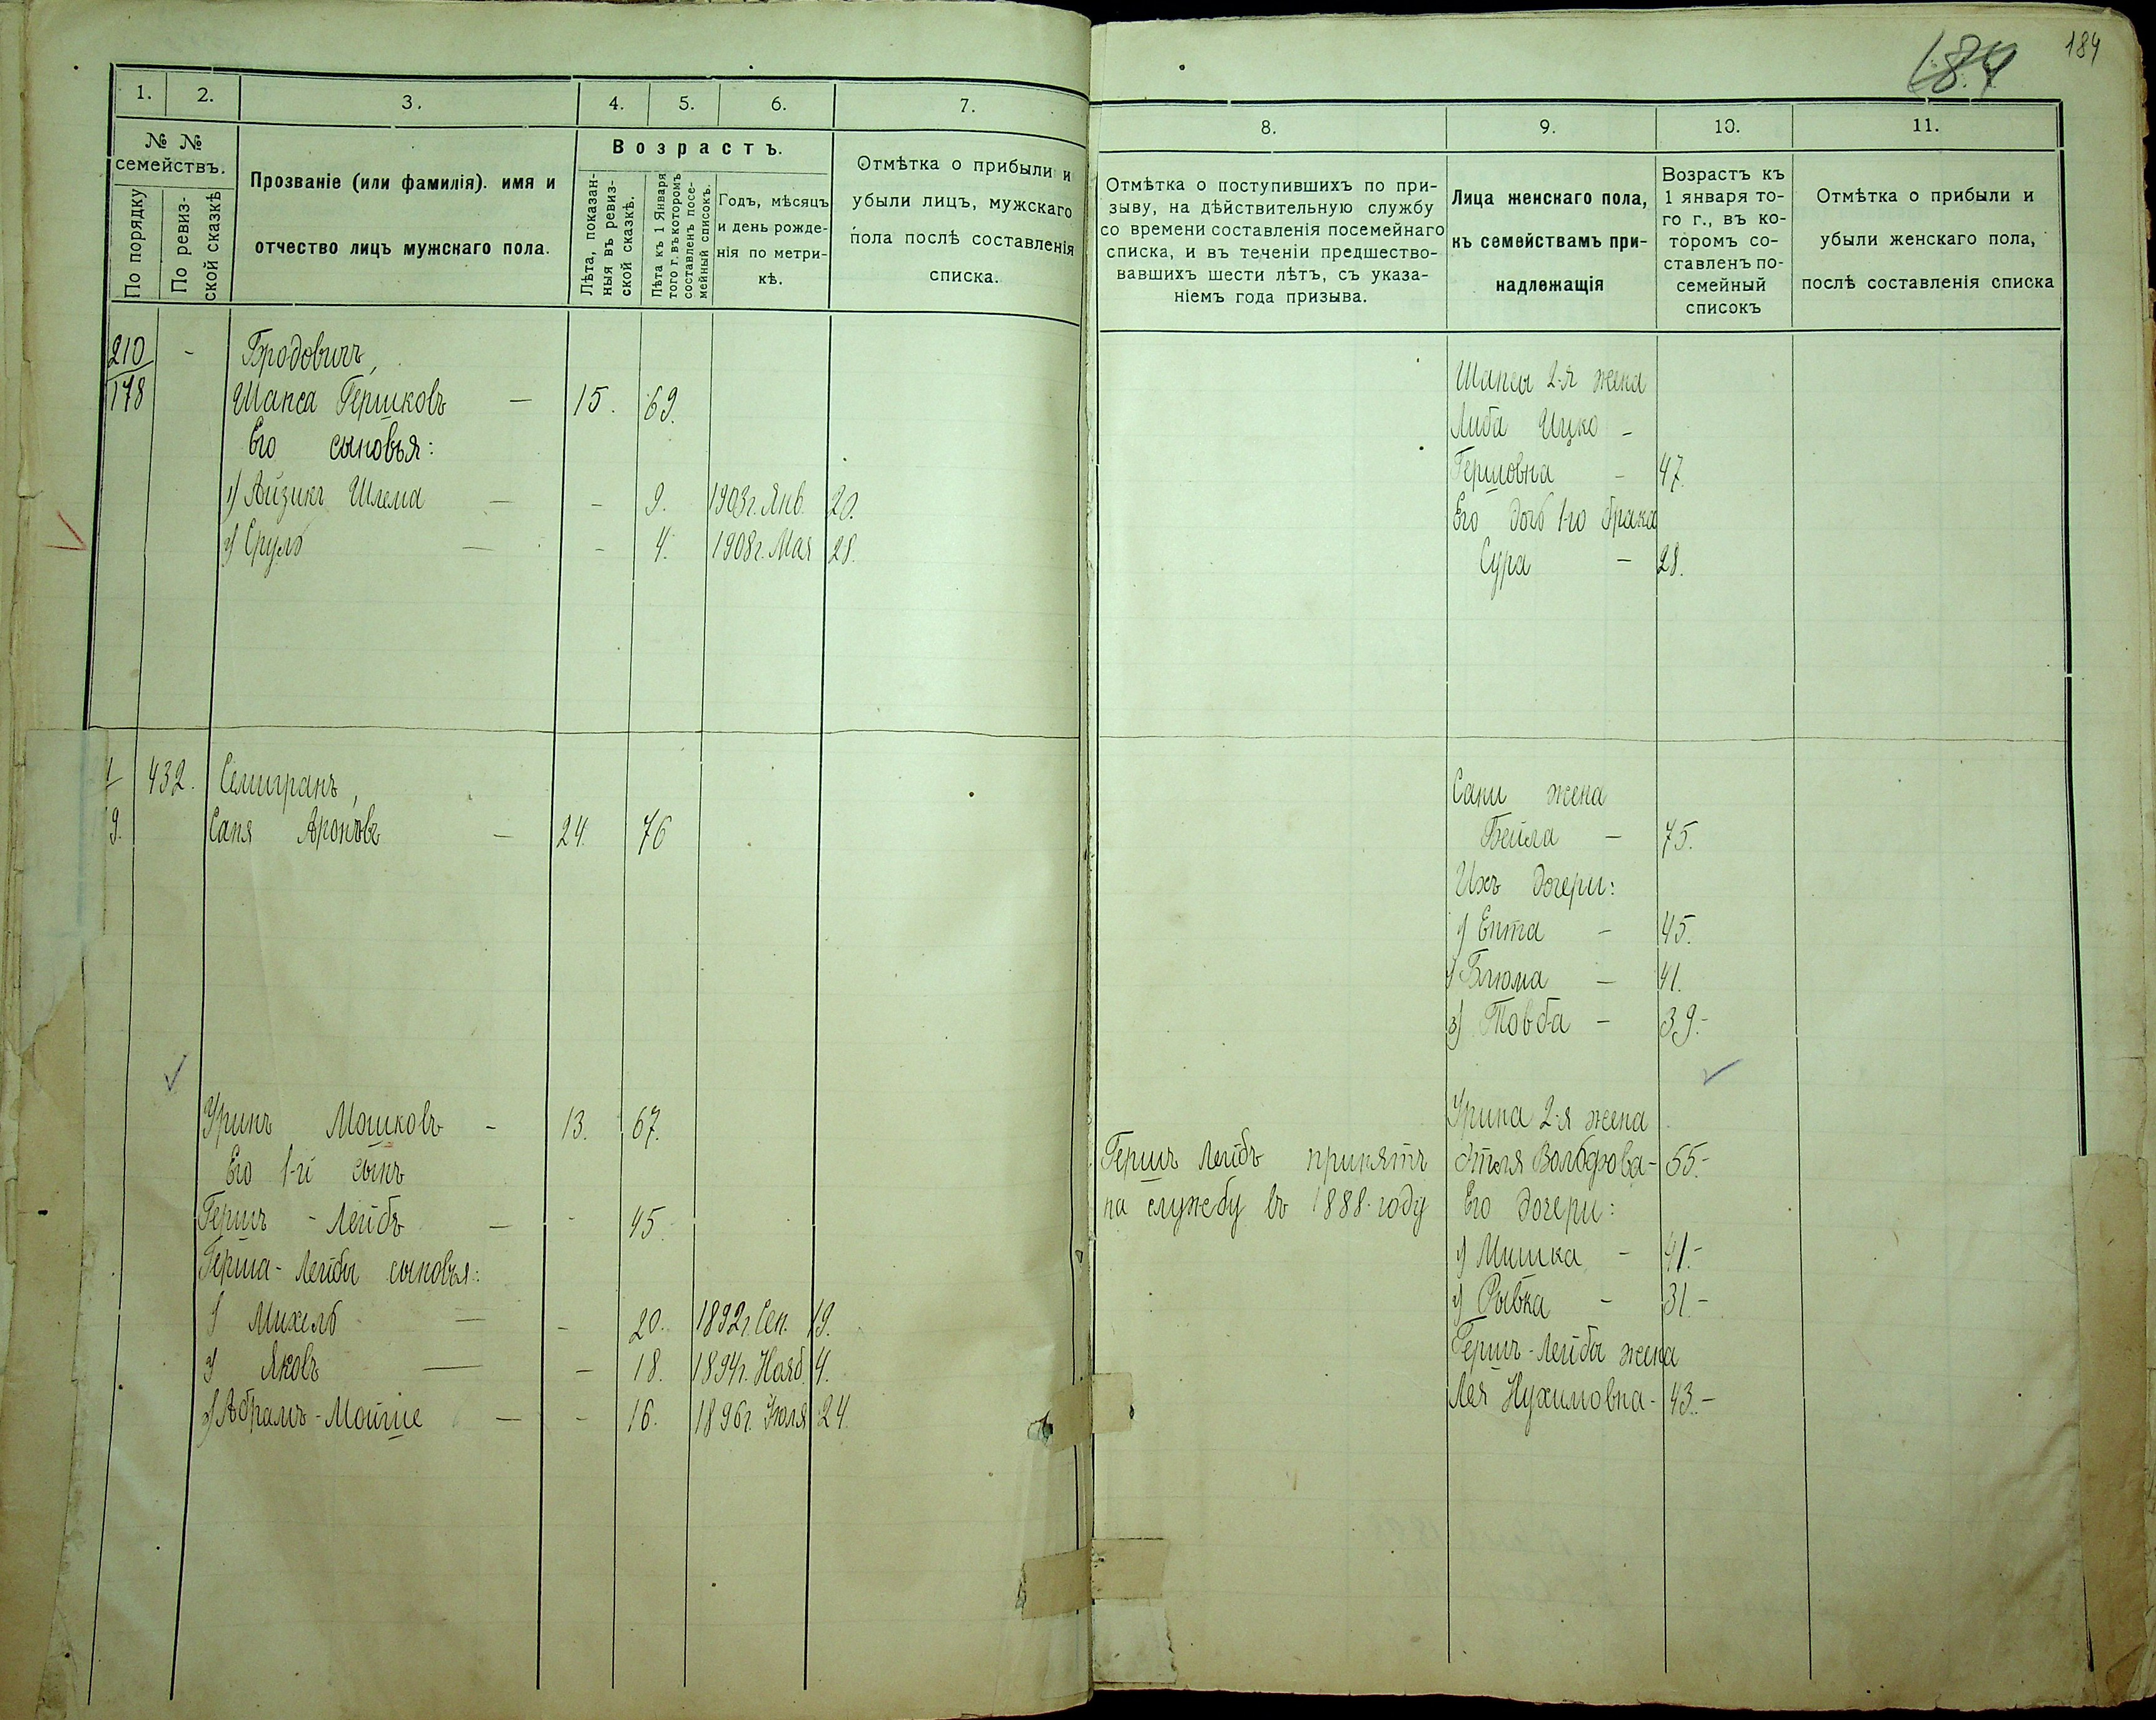 184
184
1. 2. 3. 4. 5. 6. 7.
№ № семействъ.
По порядку
По ревиз-
ской сказкѣ
Прозваніе (или фамилія). имя и
отчество лицъ мужскаго пола.
Возрастъ.
Лѣта, показан-
ныя въ ревиз-
ской сказкѣ.
Лѣта къ 1 Января
того г. въ которомъ
составленъ посе-
мейный списокъ.
Годъ, мѣсяцъ
и день рожде-
нія по метри-
кѣ.
Отмѣтка о прибыли и
убыли лицъ, мужскаго
пола послѣ составленія
списка.
210 - Бродовичъ,
178 Шапса Гершковъ — 15. 69.
Его сыновья:
1) Айзикъ Шлема — - 9. 1903 г. Янв. 20.
2) Сруль — - 4. 1908 г. Мая 28.
1 432. Селигранъ,
9. Саня Ароновъ — 24. 76
Уринъ Мошковъ - 13. 67.
Его 1-й сынъ
Гершъ - Лейбъ — - 45.
Герша-Лейбы сыновья:
1) Михель — - 20. 1892 г. Сен. 19.
2) Яковъ — - 18. 1894 г. Нояб. 4.
3) Абрамъ-Мойше — - 16. 1896 г. Іюля 24.
8. 9. 10. 11.
Отмѣтка о поступившихъ по при-
зыву, на дѣйствительную службу
со времени составленія посемейнаго
списка, и въ теченіи предшество-
вавшихъ шести лѣтъ, съ указа-
ніемъ года призыва.
Лица женскаго пола,
къ семействамъ при-
надлежащія
Возрастъ къ
1 января то-
го г., въ ко-
торомъ со-
ставленъ по-
семейный
списокъ
Отмѣтка о прибыли и
убыли женскаго пола,
послѣ составленія списка
Шапсы 2-я жена
Либа Ицко -
Гершовна - 47.
Его дочь 1-го брака
Сура - 28.
Сани жена
Бейла — 75.
Ихъ дочери:
1) Ента - 45.
2) Блюма — 41.
3) Товба - 39.-
Урина 2-я жена
Гершъ Лейбъ принятъ
на службу въ 1888 году
Этля Вольфова- 55.-
Его дочери:
1) Мишка - 41.-
2) Рывка - 31-
Гершъ-Лейбы жена
Лея Нухимовна- 43.-